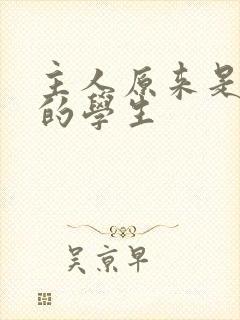 主人原来是
的學生
吴京早